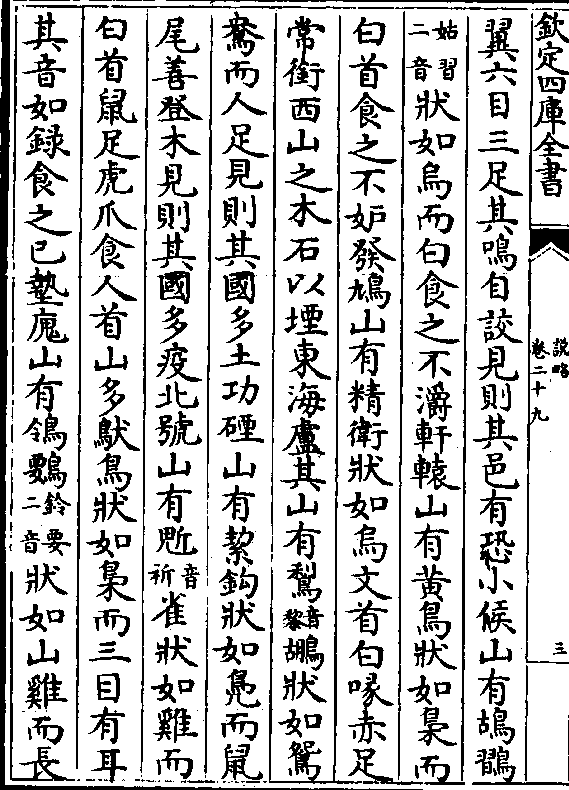 欽定四庫全書
說略
卷二十九
三
翼六目三足其鳴自詨見則其邑有恐小侯山有鴣鸐
姑習
二音狀如烏而白食之不灂軒轅山有黄鳥狀如梟而
白首食之不妒發鳩山有精衛狀如烏文首白喙赤足
常銜西山之木石以堙東海盧其山有鵹音黎鶘狀如鴛
鴦而人足見則其國多土功硾山有絜鈎狀如鳧而鼠
尾善登木見則其國多疫北號山有鬿音祈雀狀如雞而
白首鼠足虎爪食人首山多䳅鳥狀如梟而三目有耳
其音如録食之已墊廆山有鴒䴏鈴要
二音狀如山雞而長